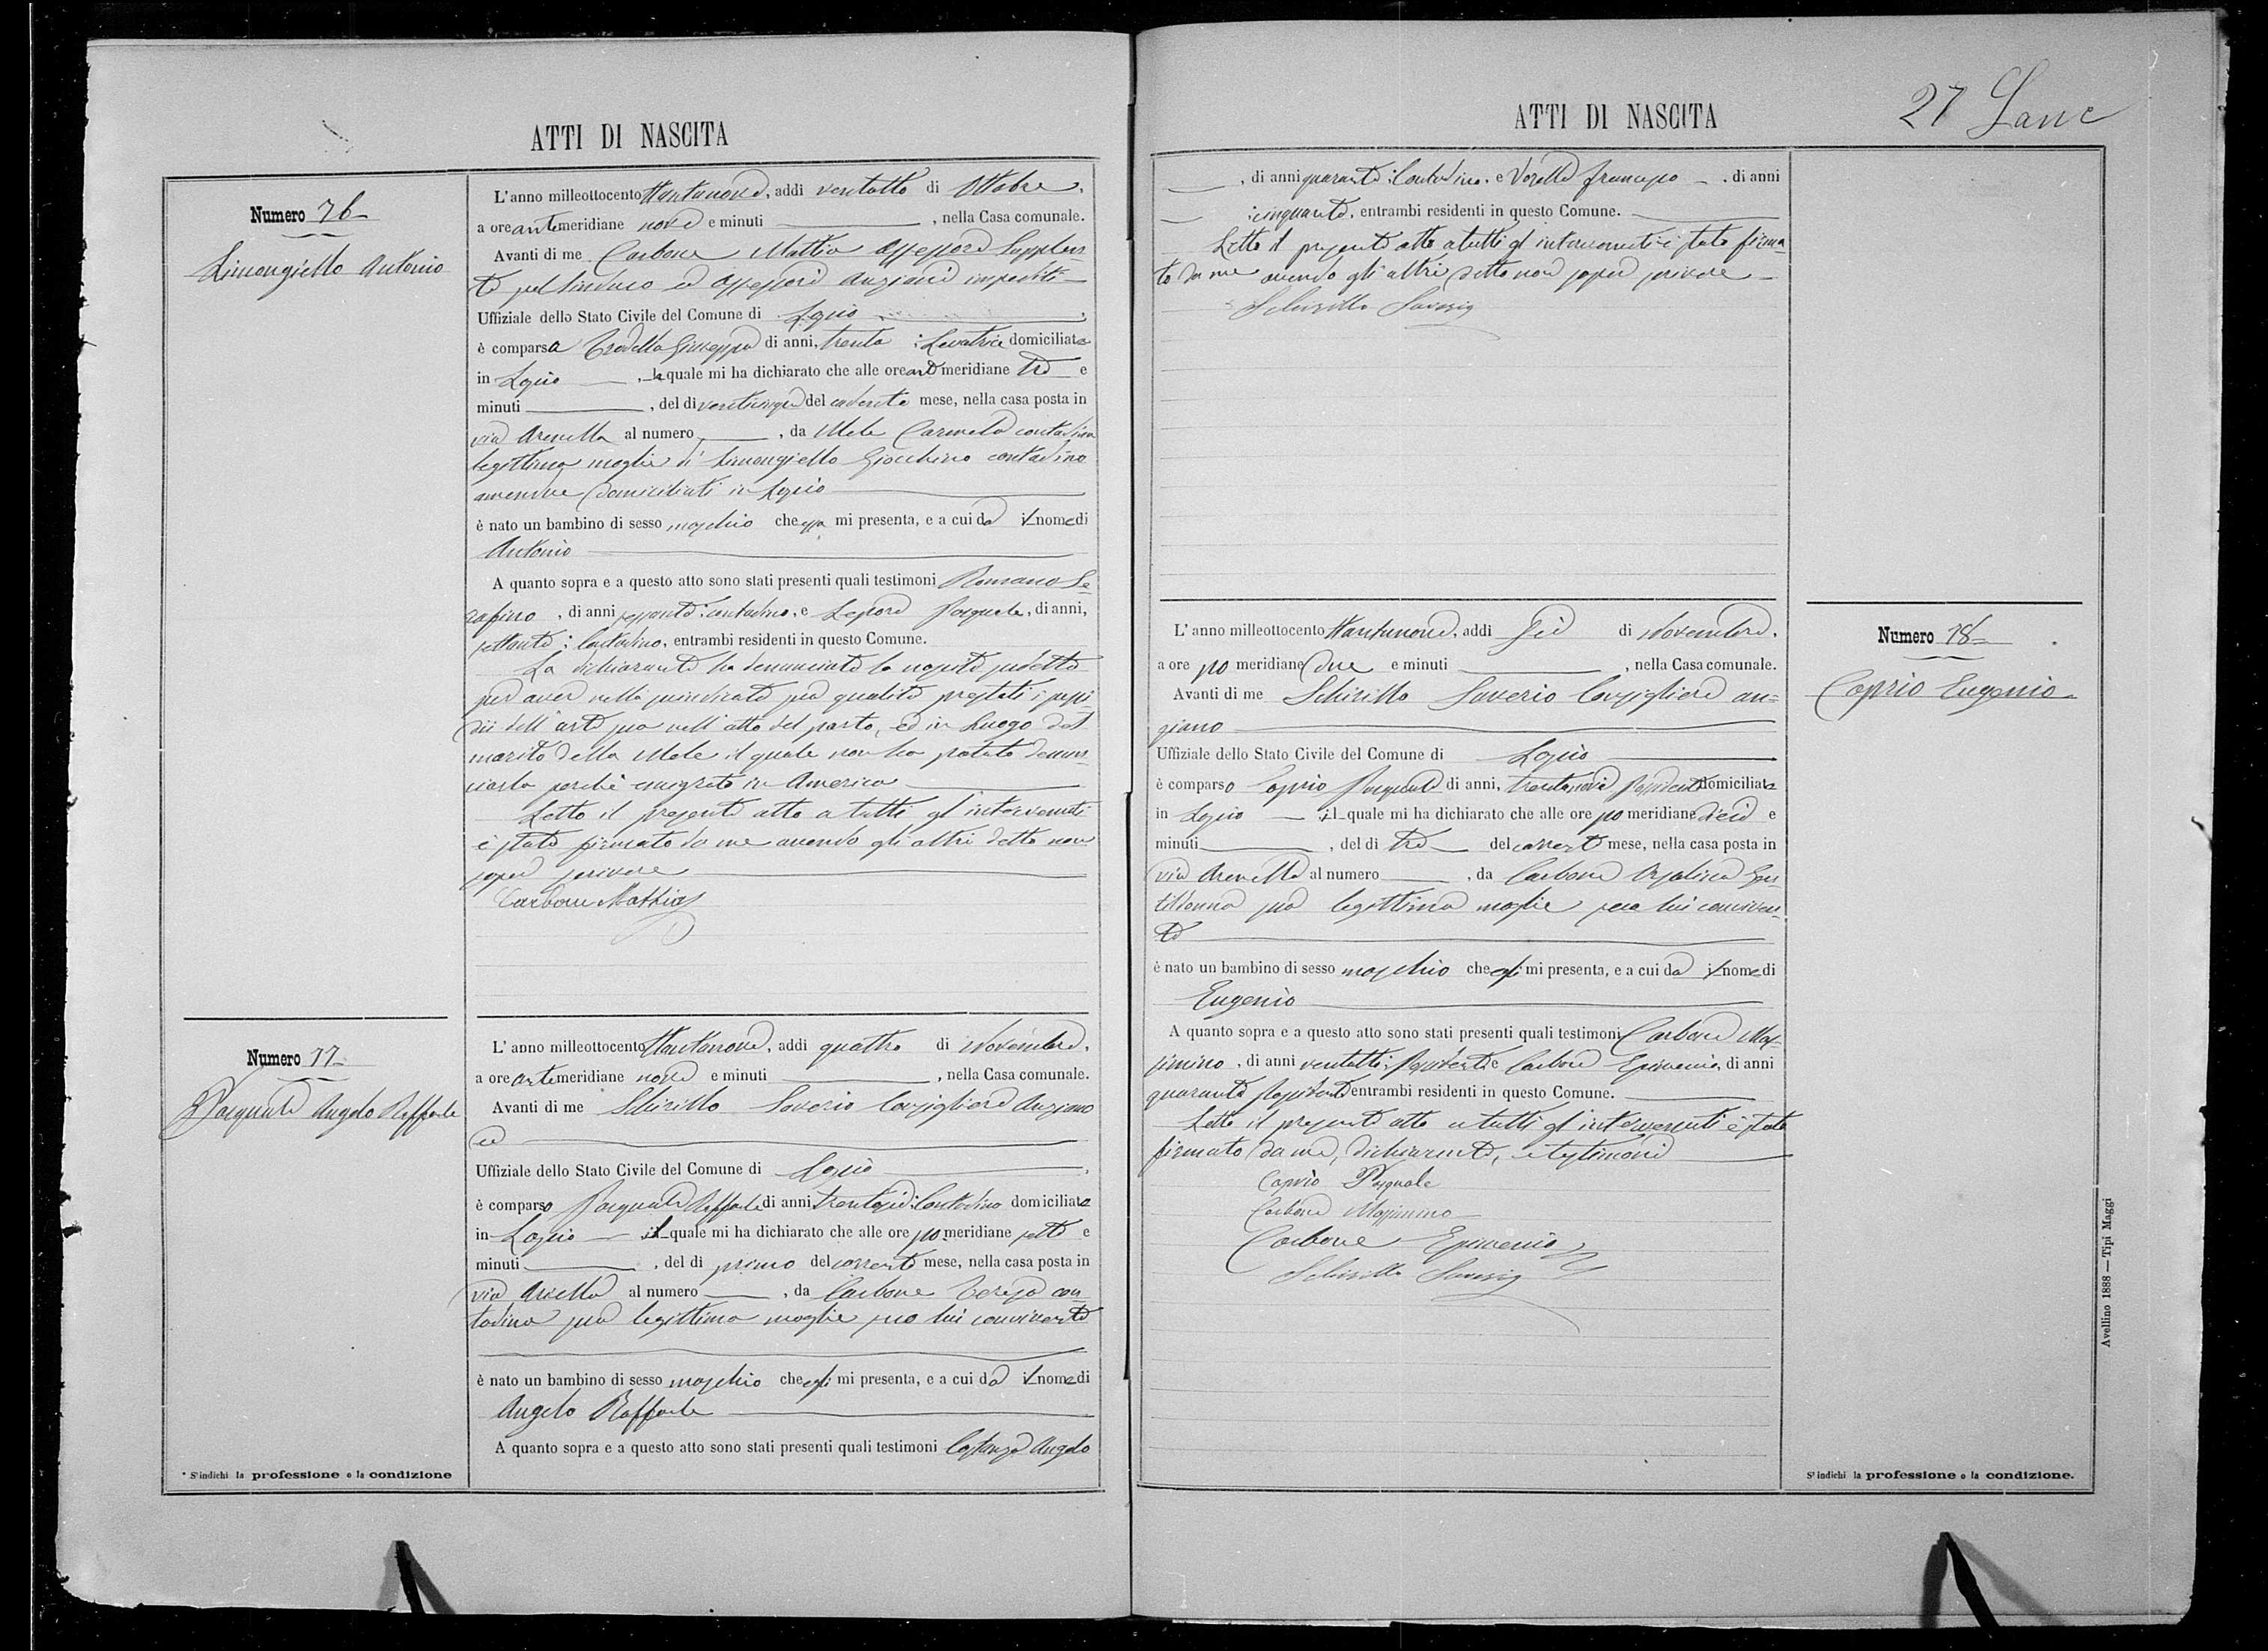 ATTI DI NASCITA
Numero 76
Limongiello Antonio
L'anno milleottocento ottantanove, addì ventotto di Ottobre,
a ore antimeridiane nove e minuti , nella Casa comunale.
Avanti di me Carbone Mattia Assessore Supplen-
te pel Sindaco ed Assessori Anziani impediti
Uffiziale dello Stato Civile del Comune di Lapio
è comparsa Tredella Giuseppa di anni, trenta : Levatrice domiciliata
in Lapio , la quale mi ha dichiarato che alle ore ant meridiane tre e
minuti , del dì venticinque del cadente mese, nella casa posta in
via Arenella al numero , da Mele Carmela contadina
legittima moglie di Limongiello Giocchino contadino
amendue domiciliati in Lapio
è nato un bambino di sesso maschio che essa mi presenta, e a cui da il nome di
Antonio
A quanto sopra e a questo atto sono stati presenti quali testimoni Romano Se
rafino , di anni sessanta : contadino, e Lepore Pasquale, di anni,
settanta : Contadino, entrambi residenti in questo Comune.
La dichiarante ha denunciato la nascita sudetta
per aver nella sua qualità prestati i sussi
dii dell'arte sua nell'atto del parto, ed in luogo del
marito della Mele il quale non ha potuto denun-
ciarla perchè emigrato in America
Letto il presente atto a tutti gl'intervenuti
è stato firmato da me avendo gli altri detto non
saper scrivere
Carbone Mattia
Numero 77
Pasquale Angelo Raffaele
L'anno milleottocento ottantanove, addì quattro di Novembre,
a ore antimeridiane nove e minuti , nella Casa comunale.
Avanti di me Schirillo Saverio Consigliere Anziano
Uffiziale dello Stato Civile del Comune di Lapio
è comparso Pasquale Raffaele di anni trentasei : Contadino domiciliato
in Lapio il quale mi ha dichiarato che alle ore po meridiane sette e
minuti , del dì primo del corrente mese, nella casa posta in
via al numero , da Carbone Teresa con
tadina sua legittima moglie seco lui convivente
è nato un bambino di sesso maschio che egli mi presenta, e a cui da il nome di
Angelo Raffaele
A quanto sopra e a questo atto sono stati presenti quali testimoni Costanza Angelo
* S'indichi la professione o la condizione
ATTI DI NASCITA
27
, di anni quaranta : Contadino, e Francesco , di anni
cinquanta, entrambi residenti in questo Comune.
Letto il presente atto a tutti gl'intervenuti è stato firma-
to da me avendo gli altri detto non saper scrivere
Schirillo Saverio
Numero 78
Caprio Eugenio
L'anno milleottocento ottantanove, addì sei di Novembre,
a ore po meridiane due e minuti , nella Casa comunale.
Avanti di me Schirillo Saverio Consigliere an-
ziano
Uffiziale dello Stato Civile del Comune di Lapio
è comparso Caprio Pasquale di anni, trentanove possidente domiciliato
in Lapio il quale mi ha dichiarato che alle ore po meridiane dieci e
minuti , del dì tre del corrente mese, nella casa posta in
via Arenella al numero , da Carbone Orsolina Gen-
tildonna sua legittima moglie seco lui conviven-
te
è nato un bambino di sesso maschio che egli mi presenta, e a cui da il nome di
Eugenio
A quanto sopra e a questo atto sono stati presenti quali testimoni Carbone Mas-
simino , di anni ventotto : possidente e Carbone Epimenio, di anni
quaranta possidente entrambi residenti in questo Comune.
Letto il presente atto a tutti gl'intervenuti è stato
firmato da me, dichiarante, e testimoni
Caprio Pasquale
Carbone Massimino
Carbone Epimenio
Schirillo Saverio
S'indichi la professione o la condizione.
Avellino 1888 — Tipi Maggi